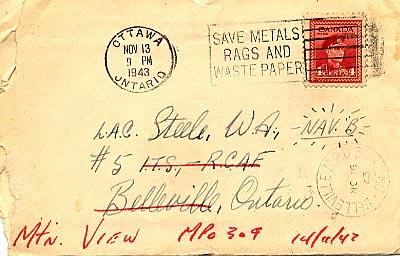 OTTAWA
NOV 13
9 PM
1943
ONTARIO
SAVE METALS
RAGS AND
WASTE PAPER
CANADA
4 CENTS 4
L.A.C. Steele, W.A., NAV. B
#5 I.T.S., - RCAF
Belleville, Ontario.
Mtn. VIEW MPO 309
BELLEVILLE